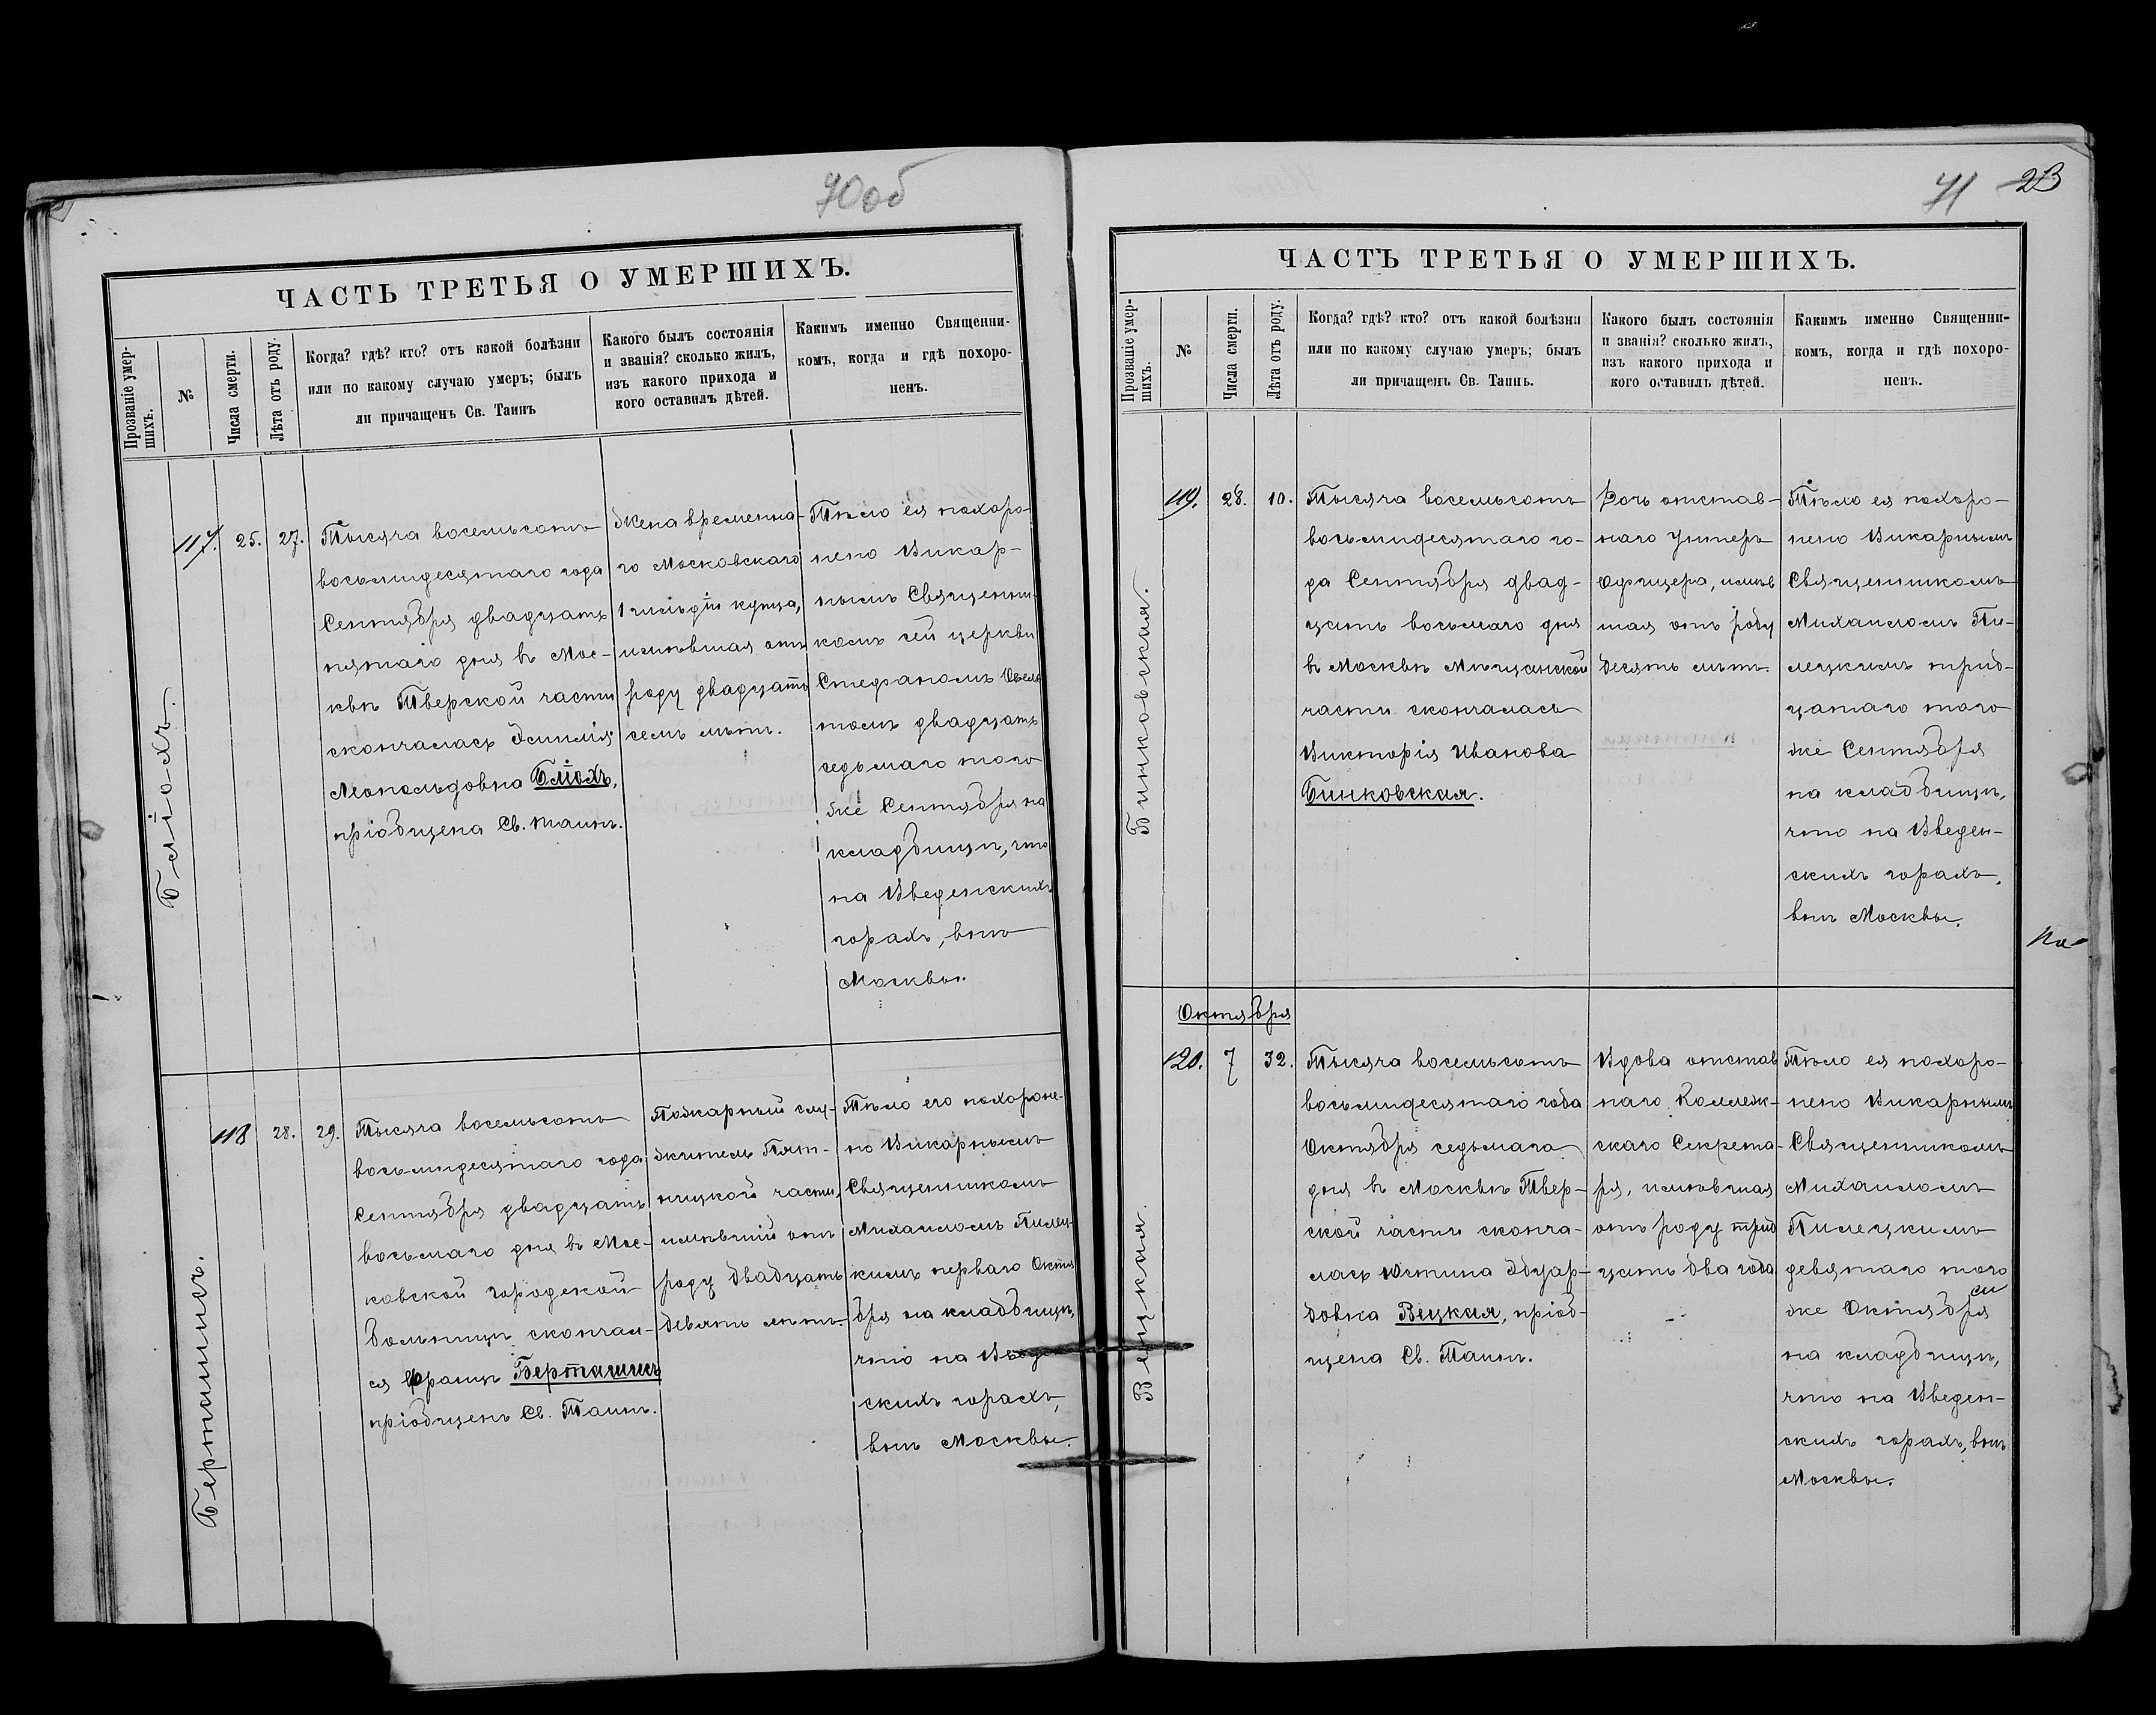 70об
ЧАСТЬ ТРЕТЬЯ О УМЕРШИХЪ.
Прозваніе умер-
шихъ.
№
Числа смерти.
Лѣта отъ роду.
Когда? гдѣ? кто? отъ какой болѣзни
или по какому случаю умеръ; былъ
ли причащенъ Св. Таинъ
Какого былъ состоянія
и званія? сколько жилъ,
изъ какого прихода и
кого оставилъ дѣтей.
Какимъ именно Священни-
комъ, когда и гдѣ похоро-
ненъ.
Бліохъ.
117.
25.
27.
Тысяча восемьсотъ
восьмидесятаго года
Сентября двадцать
пятаго дня въ Мос-
квѣ Тверской части
скончалась Эмилія
Леопольдовна Бліохъ,
пріобщена Св. таинъ.
Жена временна-
го Московскаго
1 гильдіи купца,
имѣвшая отъ
роду двадцать
семь лѣтъ.
Тѣло ея похоро-
нено Викар-
нымъ Священни-
комъ сей церкви
Стефаномъ
томъ двадцать
седьмаго того
же Сентября на
кладбищѣ, что
на Введенскихъ
горахъ, внѣ
Москвы.
Берташисъ.
118
28.
29.
Тысяча восемьсотъ
восьмидесятаго года
Сентября двадцать
восьмаго дня въ Мос-
ковской городской
больницѣ скончал-
ся Францъ Берташисъ
пріобщенъ Св. Таинъ.
Пожарный слу-
житель Пят-
ницкой части,
имѣвшій отъ
роду двадцать
девять лѣтъ.
Тѣло его похороне-
но Викарнымъ
Священникомъ
Михаиломъ Пилец-
кимъ перваго Октя
бря на кладбищѣ,
что на Введен
скихъ горахъ,
внѣ Москвы.
71 23
ЧАСТЬ ТРЕТЬЯ О УМЕРШИХЪ.
Прозваніе умер-
шихъ.
№
Числа смерти.
Лѣта отъ роду.
Когда? гдѣ? кто? отъ какой болѣзни
или по какому случаю умеръ; былъ
ли причащенъ Св. Таинъ.
Какого былъ состоянія
и званія? сколько жилъ,
изъ какого прихода и
кого оставилъ дѣтей.
Какимъ именно Священни-
комъ, когда и гдѣ похоро-
ненъ.
Бинковская.
119.
28.
10.
Тысяча восемьсотъ
восьмидесятаго го-
да Сентября двад-
цать восьмаго дня
въ Москвѣ Мѣщанской
части скончалась
Викторія Иванова
Бинковская.
Дочь отстав-
наго Унтеръ
Офицера, имѣв
шая отъ роду
десять лѣтъ.
Тѣло ея похоро-
нено Викарнымъ
Священникомъ
Михаиломъ Пи-
лецкимъ трид-
цатаго того
же Сентября
на кладбищѣ,
что на Введен-
скихъ горахъ,
внѣ Москвы.
На
Октября
Вецкая.
120.
7
32.
Тысяча восемьсотъ
восьмидесятаго года
Октября седьмаго
дня въ Москвѣ Твер-
ской части сконча-
лась Юстина Эдуар-
довна Вецкая, пріоб-
щена Св. Таинъ.
Вдова отстав
наго Коллеж-
скаго Секрета-
ря, имѣвшая
отъ роду трид
цать два года
Тѣло ея похоро-
нено Викарнымъ
Священникомъ
Михаиломъ
Пилецкимъ
девятаго того
же Октября
на кладбищѣ,
что на Введен-
скихъ горахъ, внѣ
Москвы.